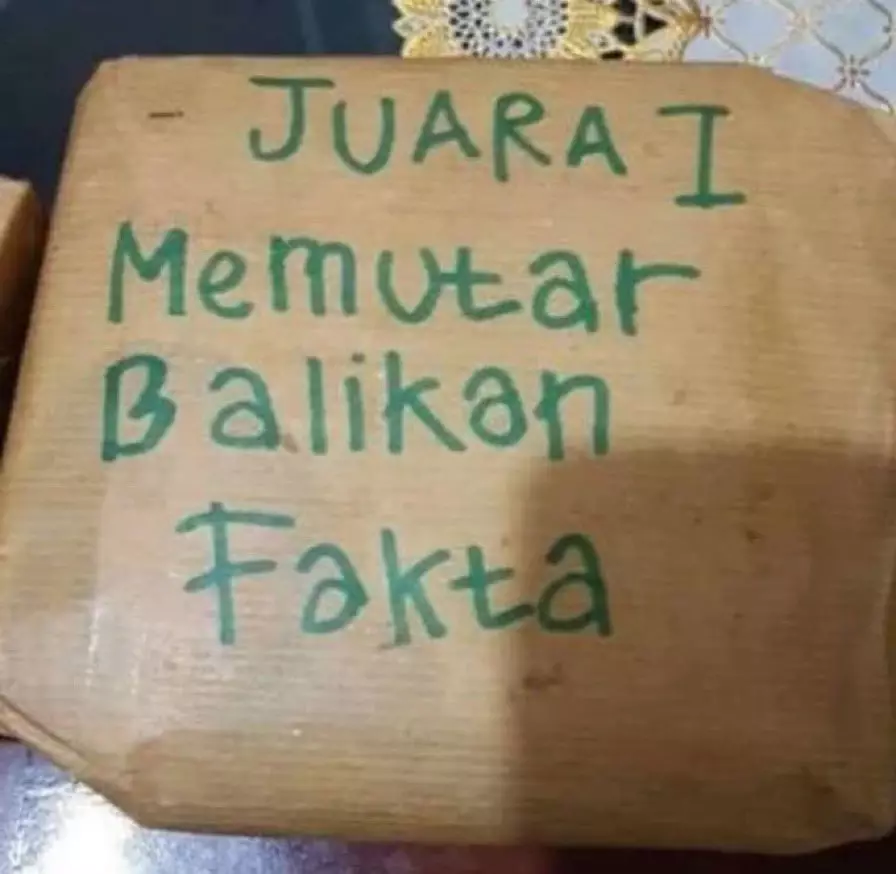 JUARA I
Memutar
Balikan
Fakta